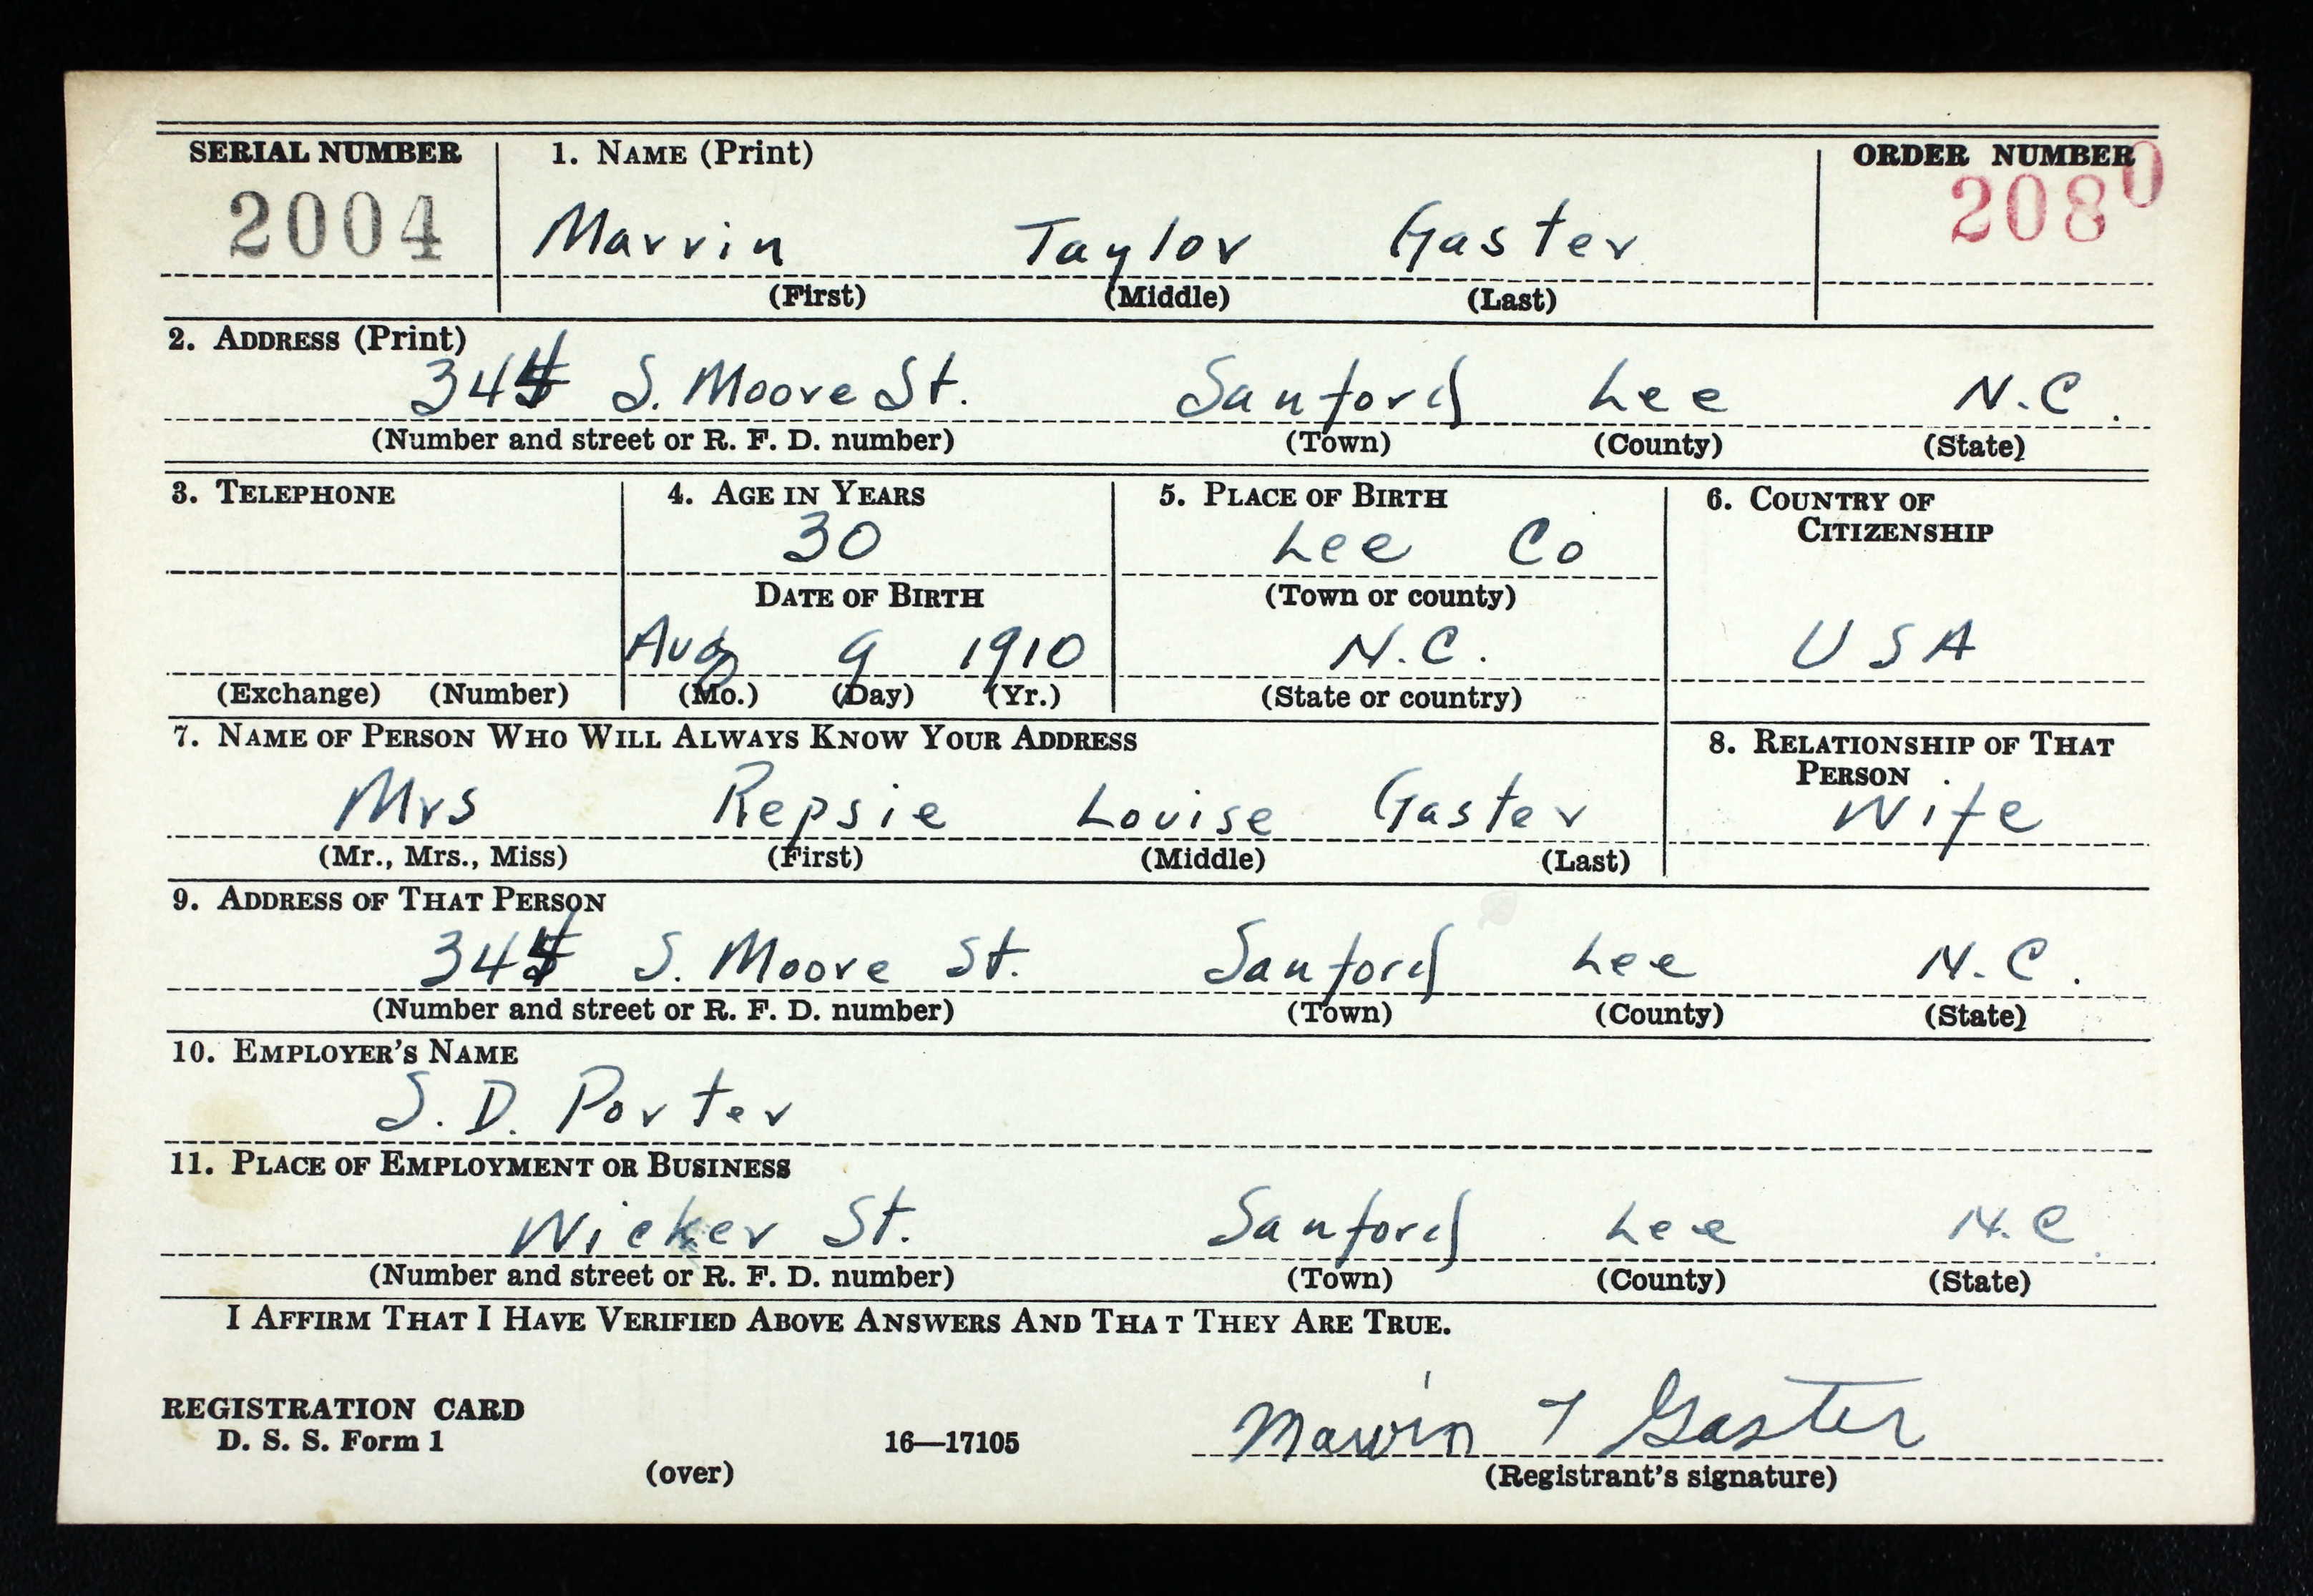 SERIAL NUMBER 1. NAME (Print) ORDER NUMBER
2004 Marvin Taylor Gaster 2080
(First) (Middle) (Last)
2. ADDRESS (Print)
344 S. Moore St. Sanford Lee N.C.
(Number and street or R. F. D. number) (Town) (County) (State)
3. TELEPHONE 4. AGE IN YEARS 5. PLACE OF BIRTH 6. COUNTRY OF CITIZENSHIP
30 Lee Co
DATE OF BIRTH (Town or county)
Aug 9 1910 N.C. USA
(Exchange) (Number) (Mo.) (Day) (Yr.) (State or country)
7. NAME OF PERSON WHO WILL ALWAYS KNOW YOUR ADDRESS 8. RELATIONSHIP OF THAT PERSON
Mrs Repsie Louise Gaster Wife
(Mr., Mrs., Miss) (First) (Middle) (Last)
9. ADDRESS OF THAT PERSON
344 S. Moore St. Sanford Lee N.C.
(Number and street or R. F. D. number) (Town) (County) (State)
10. EMPLOYER'S NAME
S. D. Porter
11. PLACE OF EMPLOYMENT OR BUSINESS
Wicker St. Sanford Lee N.C.
(Number and street or R. F. D. number) (Town) (County) (State)
I AFFIRM THAT I HAVE VERIFIED ABOVE ANSWERS AND THA T THEY ARE TRUE.
REGISTRATION CARD
D. S. S. Form 1 16—17105 Marvin T Gaster
(over) (Registrant's signature)